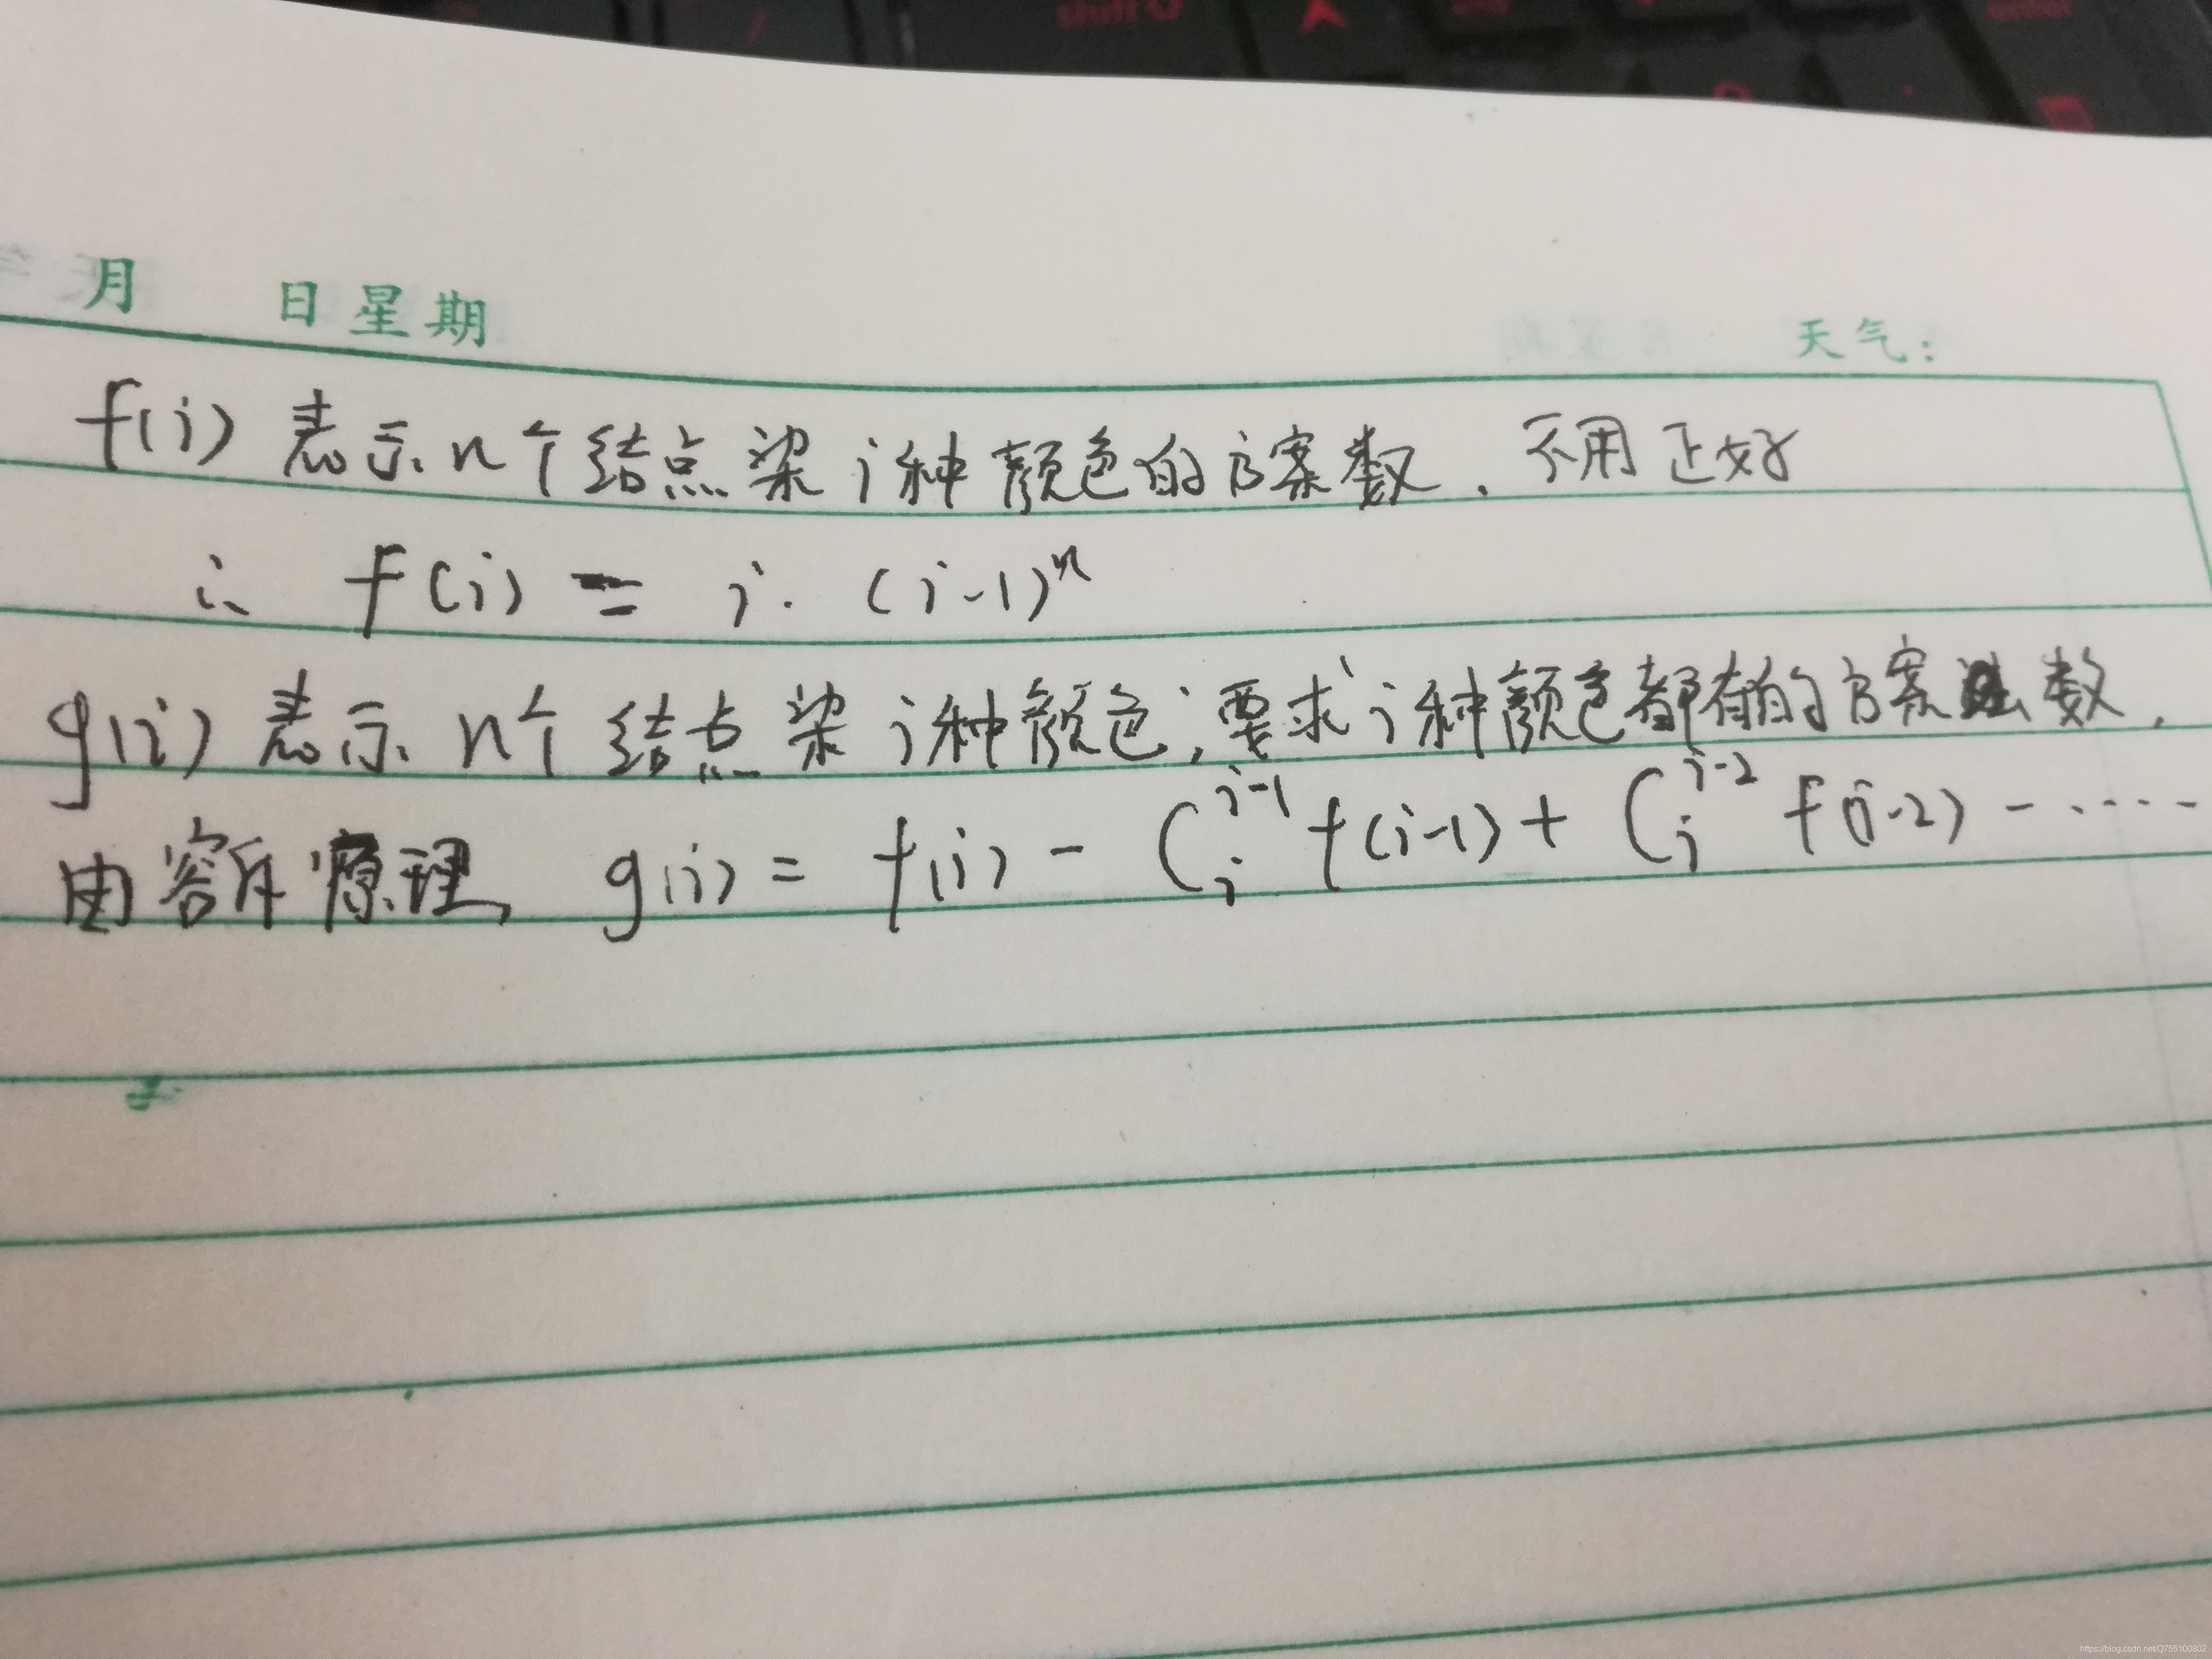 月 日 星期 天气:
f(i) 表示 n个结点染 i种颜色的方案数. 不用正好
∴ f(i) = i·(i-1)^n
g(i) 表示 n个结点染 i种颜色, 要求 i种颜色都有的方案数.
由容斥原理, g(i) = f(i) - C_i^{i-1} f(i-1) + C_i^{i-2} f(i-2) - ·····
https://blog.csdn.net/Q755100802